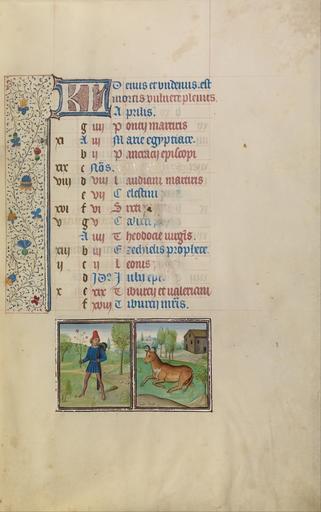 KL Denus et undenus est
mortis vulnere plenus.
Aprilis.
g iiii Poncij martiris
xi A iii Marie egyptiace.
b ii Pancracij episcopi
xix c Nōs.
viii d viii martiris
e vii Celestini
xvi f vi Sixti
v g v
A iiii Theodocie virgis.
xiii b iii Ezechielis prophete.
ii c ii Leonis
d Idꝰ Iulij epi.
x e xix Tiburcij et valeriani
f xviii Tiburcij mr̄is.